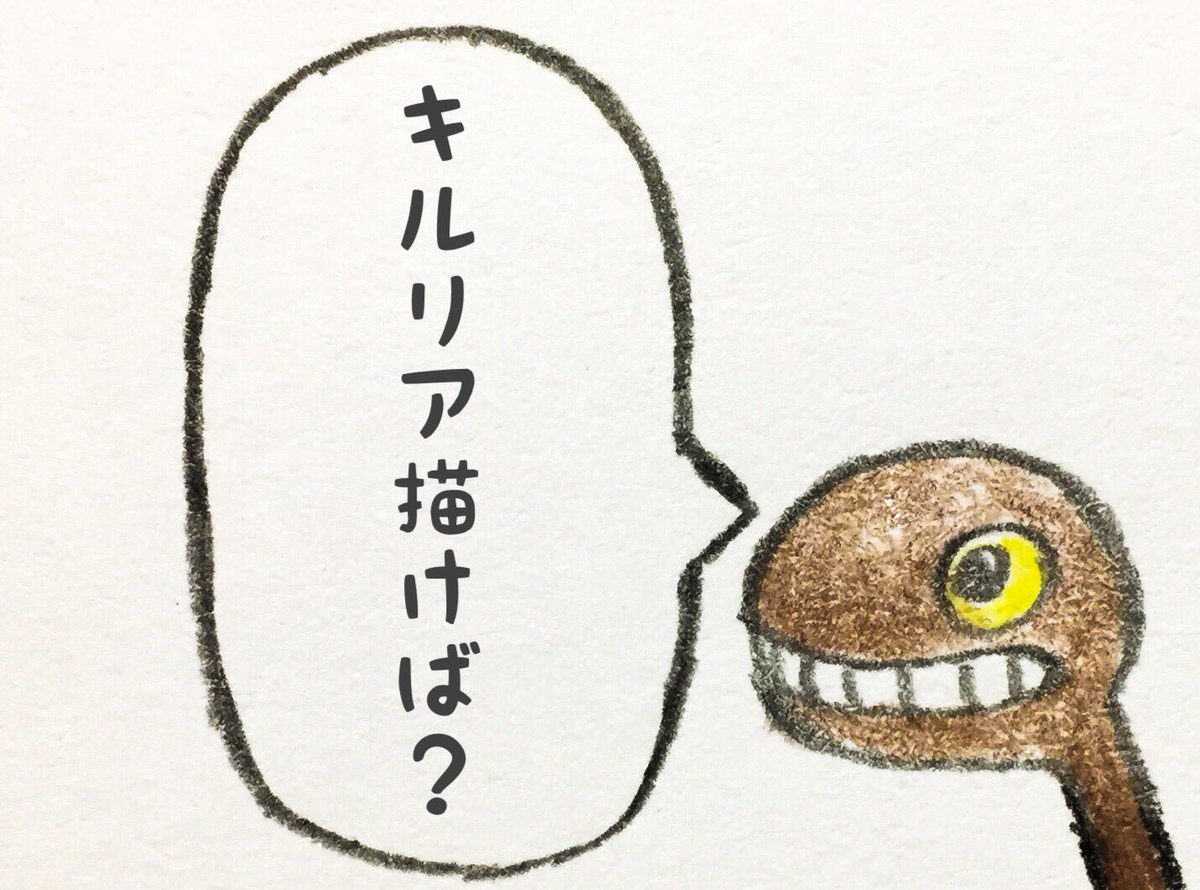 キルリア描けば？